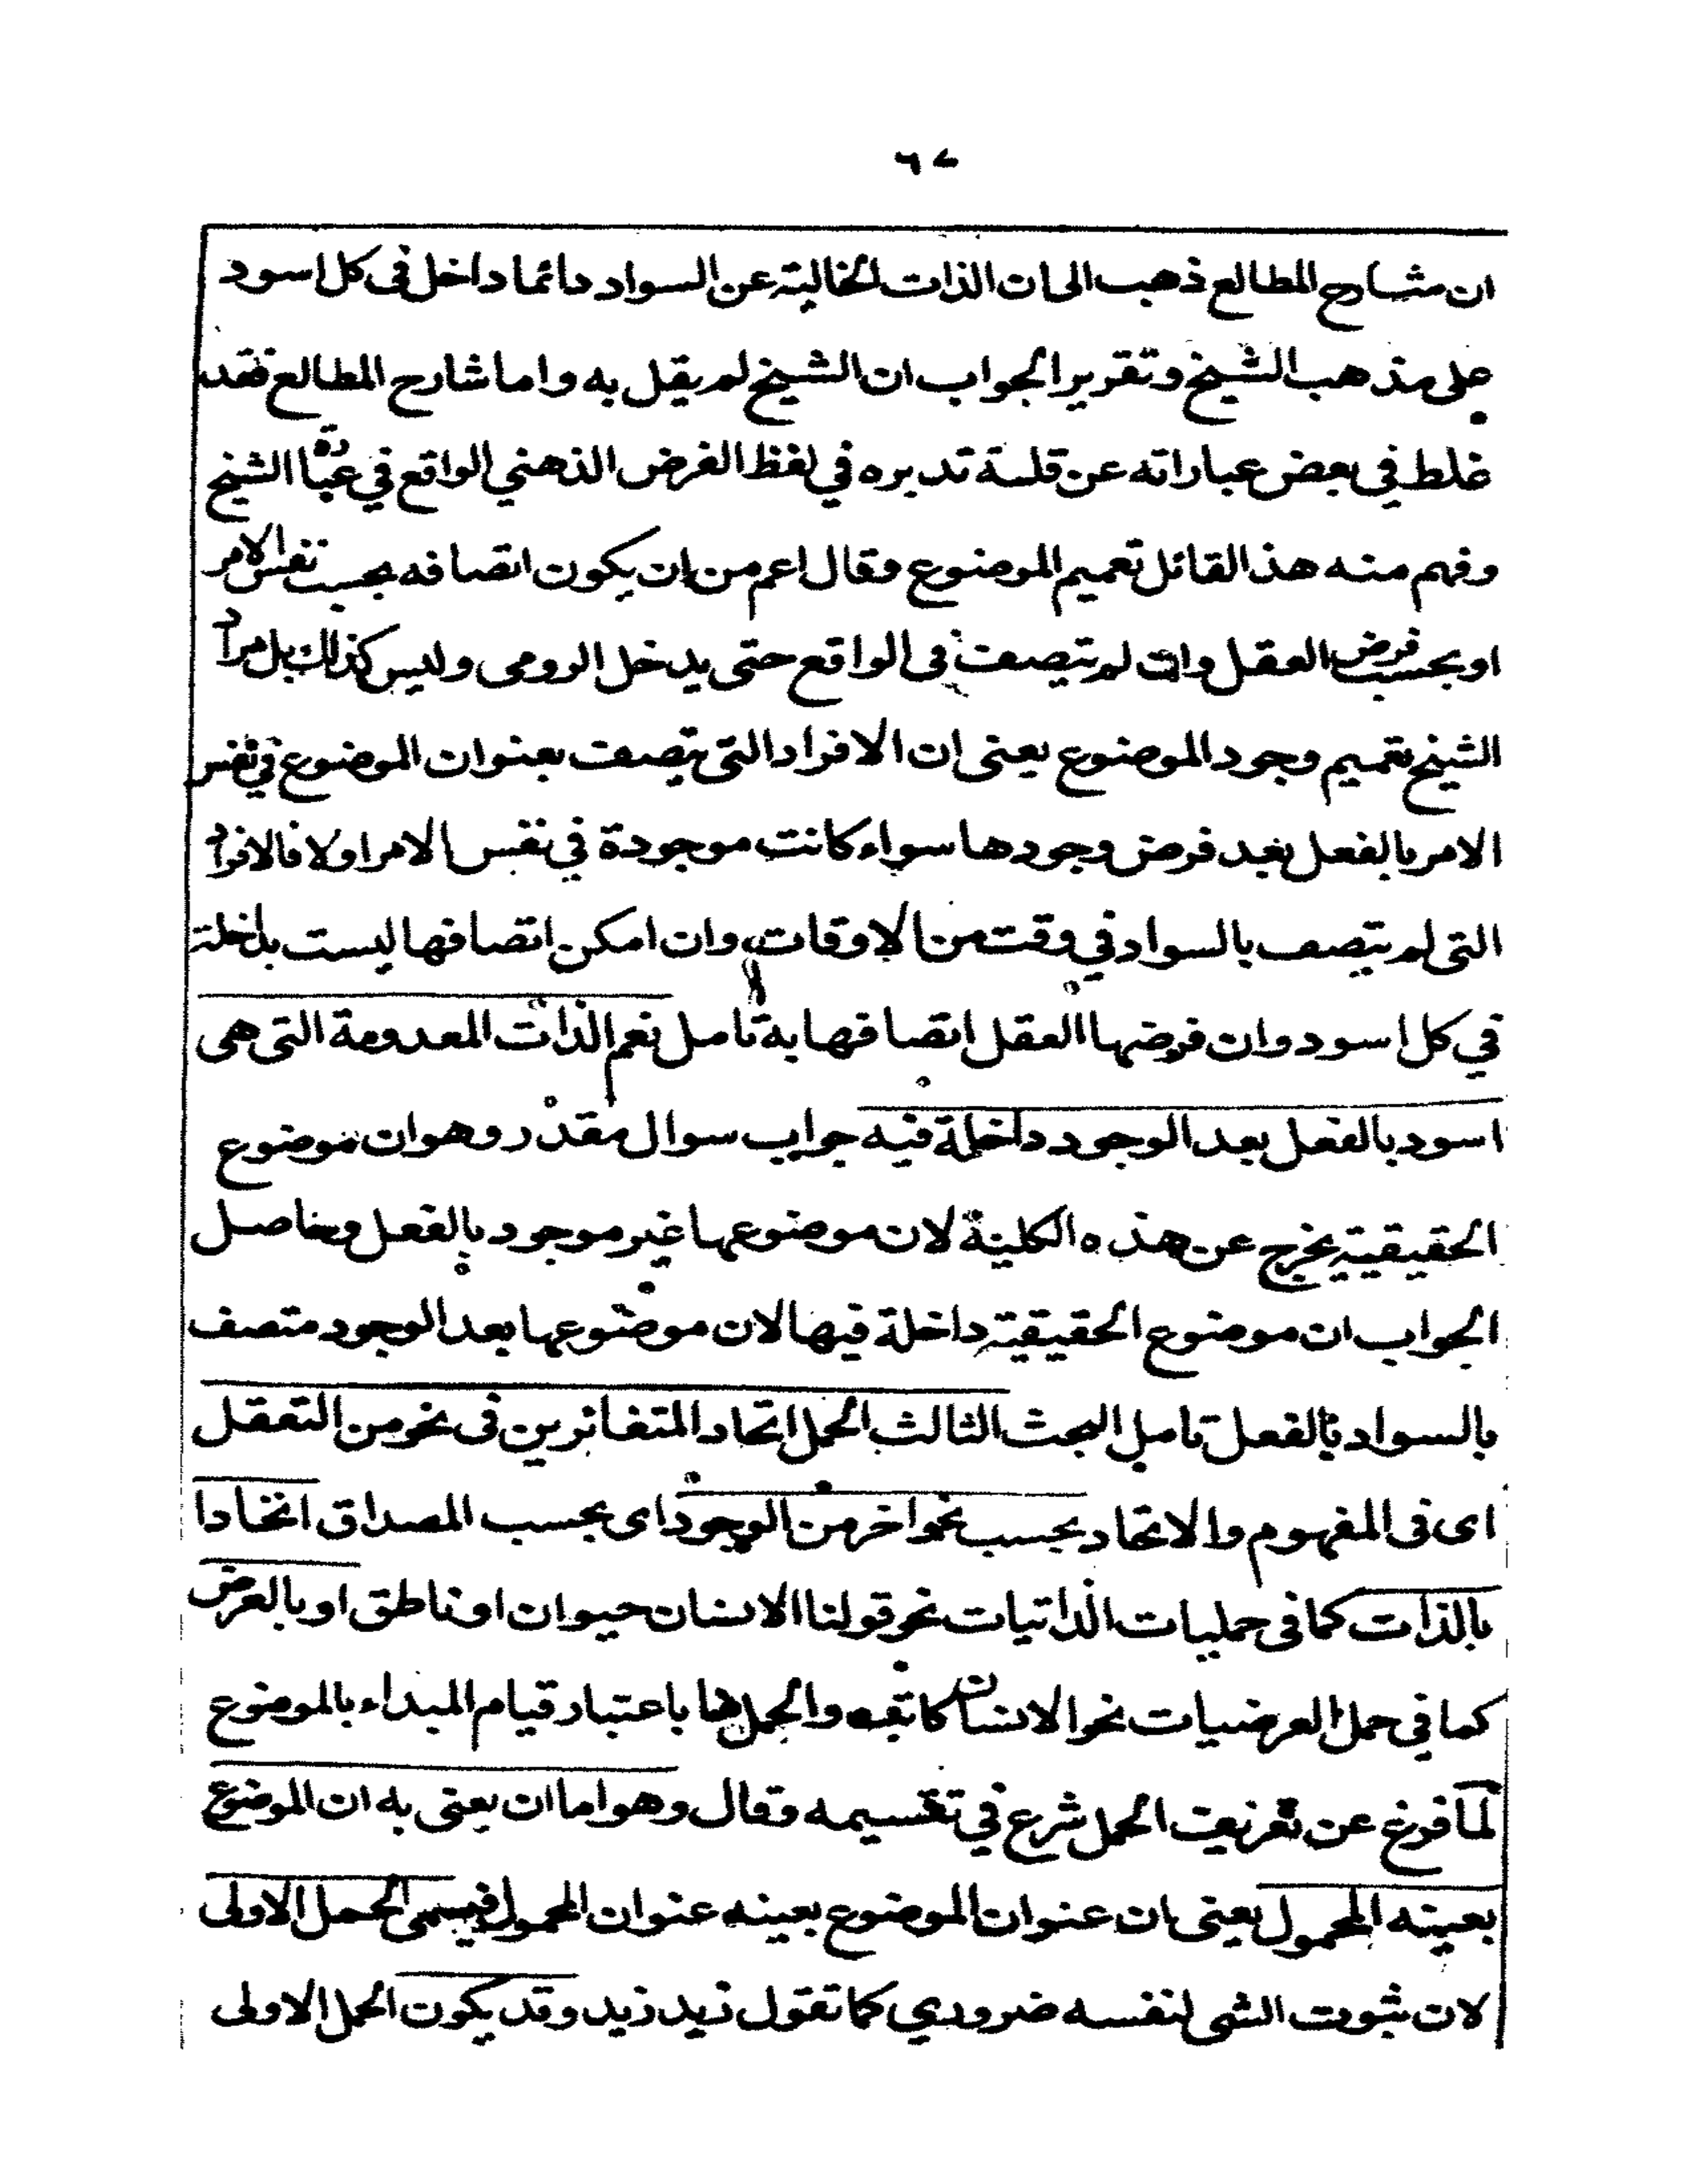 ٦٧
ان شارح المطالع ذهب الى ان الذات الخالية عن السواد دائما داخل فى كل اسود
على مذهب الشيخ وتقرير الجواب ان الشيخ لم يقل به واما شارح المطالع فقد
غلط في بعض عباراته عن قلة تدبره في لفظ الفرض الذهني الواقع في عبارة الشيخ
وفهم منه هذا القائل تعميم الموضوع وقال اعم من ان يكون اتصافه بحسب نفس الامر
او بحسب فرض العقل وان لم يتصف فى الواقع حتى يدخل الرومى وليس كذلك بل مراد
الشيخ تعميم وجود الموضوع يعنى ان الافراد التى يتصف بعنوان الموضوع في نفس
الامر بالفعل بعد فرض وجودها سواء كانت موجودة في نفس الامر اولا فالافراد
التى لم يتصف بالسواد في وقت من الاوقات وان امكن اتصافها ليست بداخلة
في كل اسود وان فرضها العقل اتصافها به تامل نعم الذات المعدومة التى هى
اسود بالفعل بعد الوجود داخلة فيه جواب سوال مقدر وهو ان موضوع
الحقيقية يخرج عن هذه الكلية لان موضوعها غير موجود بالفعل وحاصل
الجواب ان موضوع الحقيقية داخلة فيها لان موضوعها بعد الوجود متصف
بالسواد بالفعل تامل البحث الثالث الحمل اتحاد المتغائرين فى نحو من التعقل
اى فى المفهوم والاتحاد بحسب نحو اخر من الوجود اى بحسب المصداق اتحادا
بالذات كما فى حمليات الذاتيات نحو قولنا الانسان حيوان او ناطق او بالعرض
كما في حمل العرضيات نحو الانسان كاتب والحمل ها باعتبار قيام المبداء بالموضوع
لما فرغ عن تعريف الحمل شرع في تقسيمه وقال وهو اما ان يعنى به ان الموضوع
بعينه المحمول يعنى ان عنوان الموضوع بعينه عنوان المحمول فيسمى الحمل الاولى
لان ثبوت الشى لنفسه ضروري كما تقول زيد زيد وقد يكون الحمل الاولى